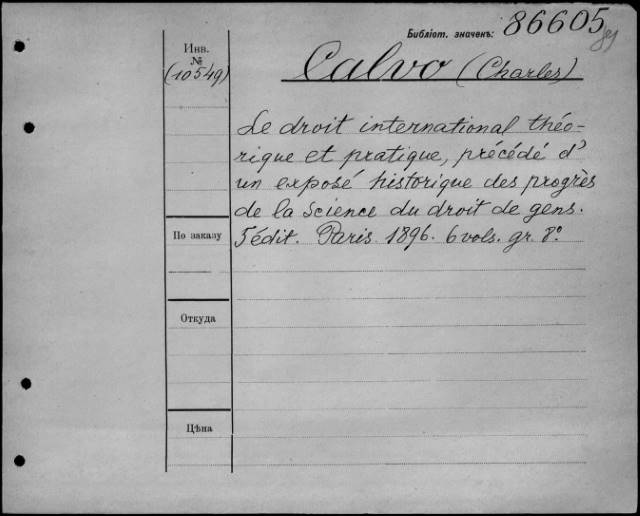 Библіот. значекъ: 86605
Инв.
№
(10549)
Calvo (Charles)
Le droit international théo-
rique et pratique, précédé d'
un exposé historique des progrès
de la Science du droit de gens.
5 édit. Paris 1896. 6 vols. gr. 8º.
По заказу
Откуда
Цѣна